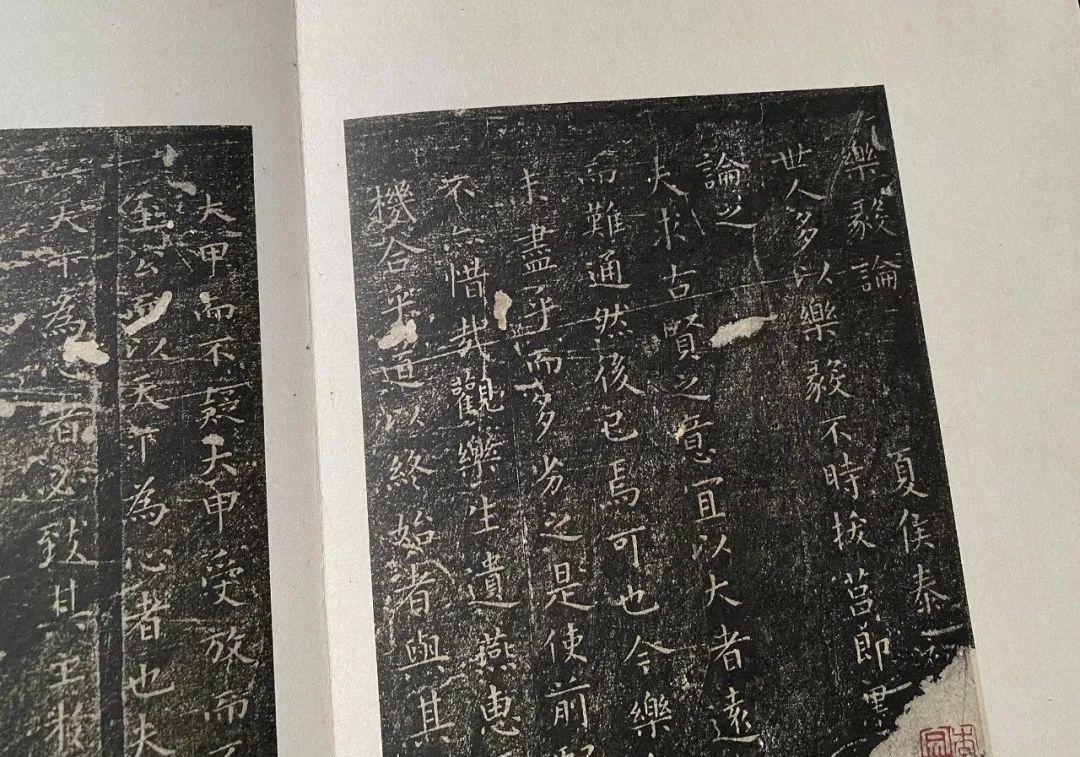 樂毅論 夏侯泰
世人多以樂毅不時拔莒即墨
論之
夫求古賢之意宜以大者遠
而難通然後已焉可也今樂
未盡乎而多劣之是使前賢
不惜哉觀樂生遺燕惠
機合乎道以終始者與其
大甲而不疑大甲受放而不
至公而以天下為心者也夫
天下為者必致其主